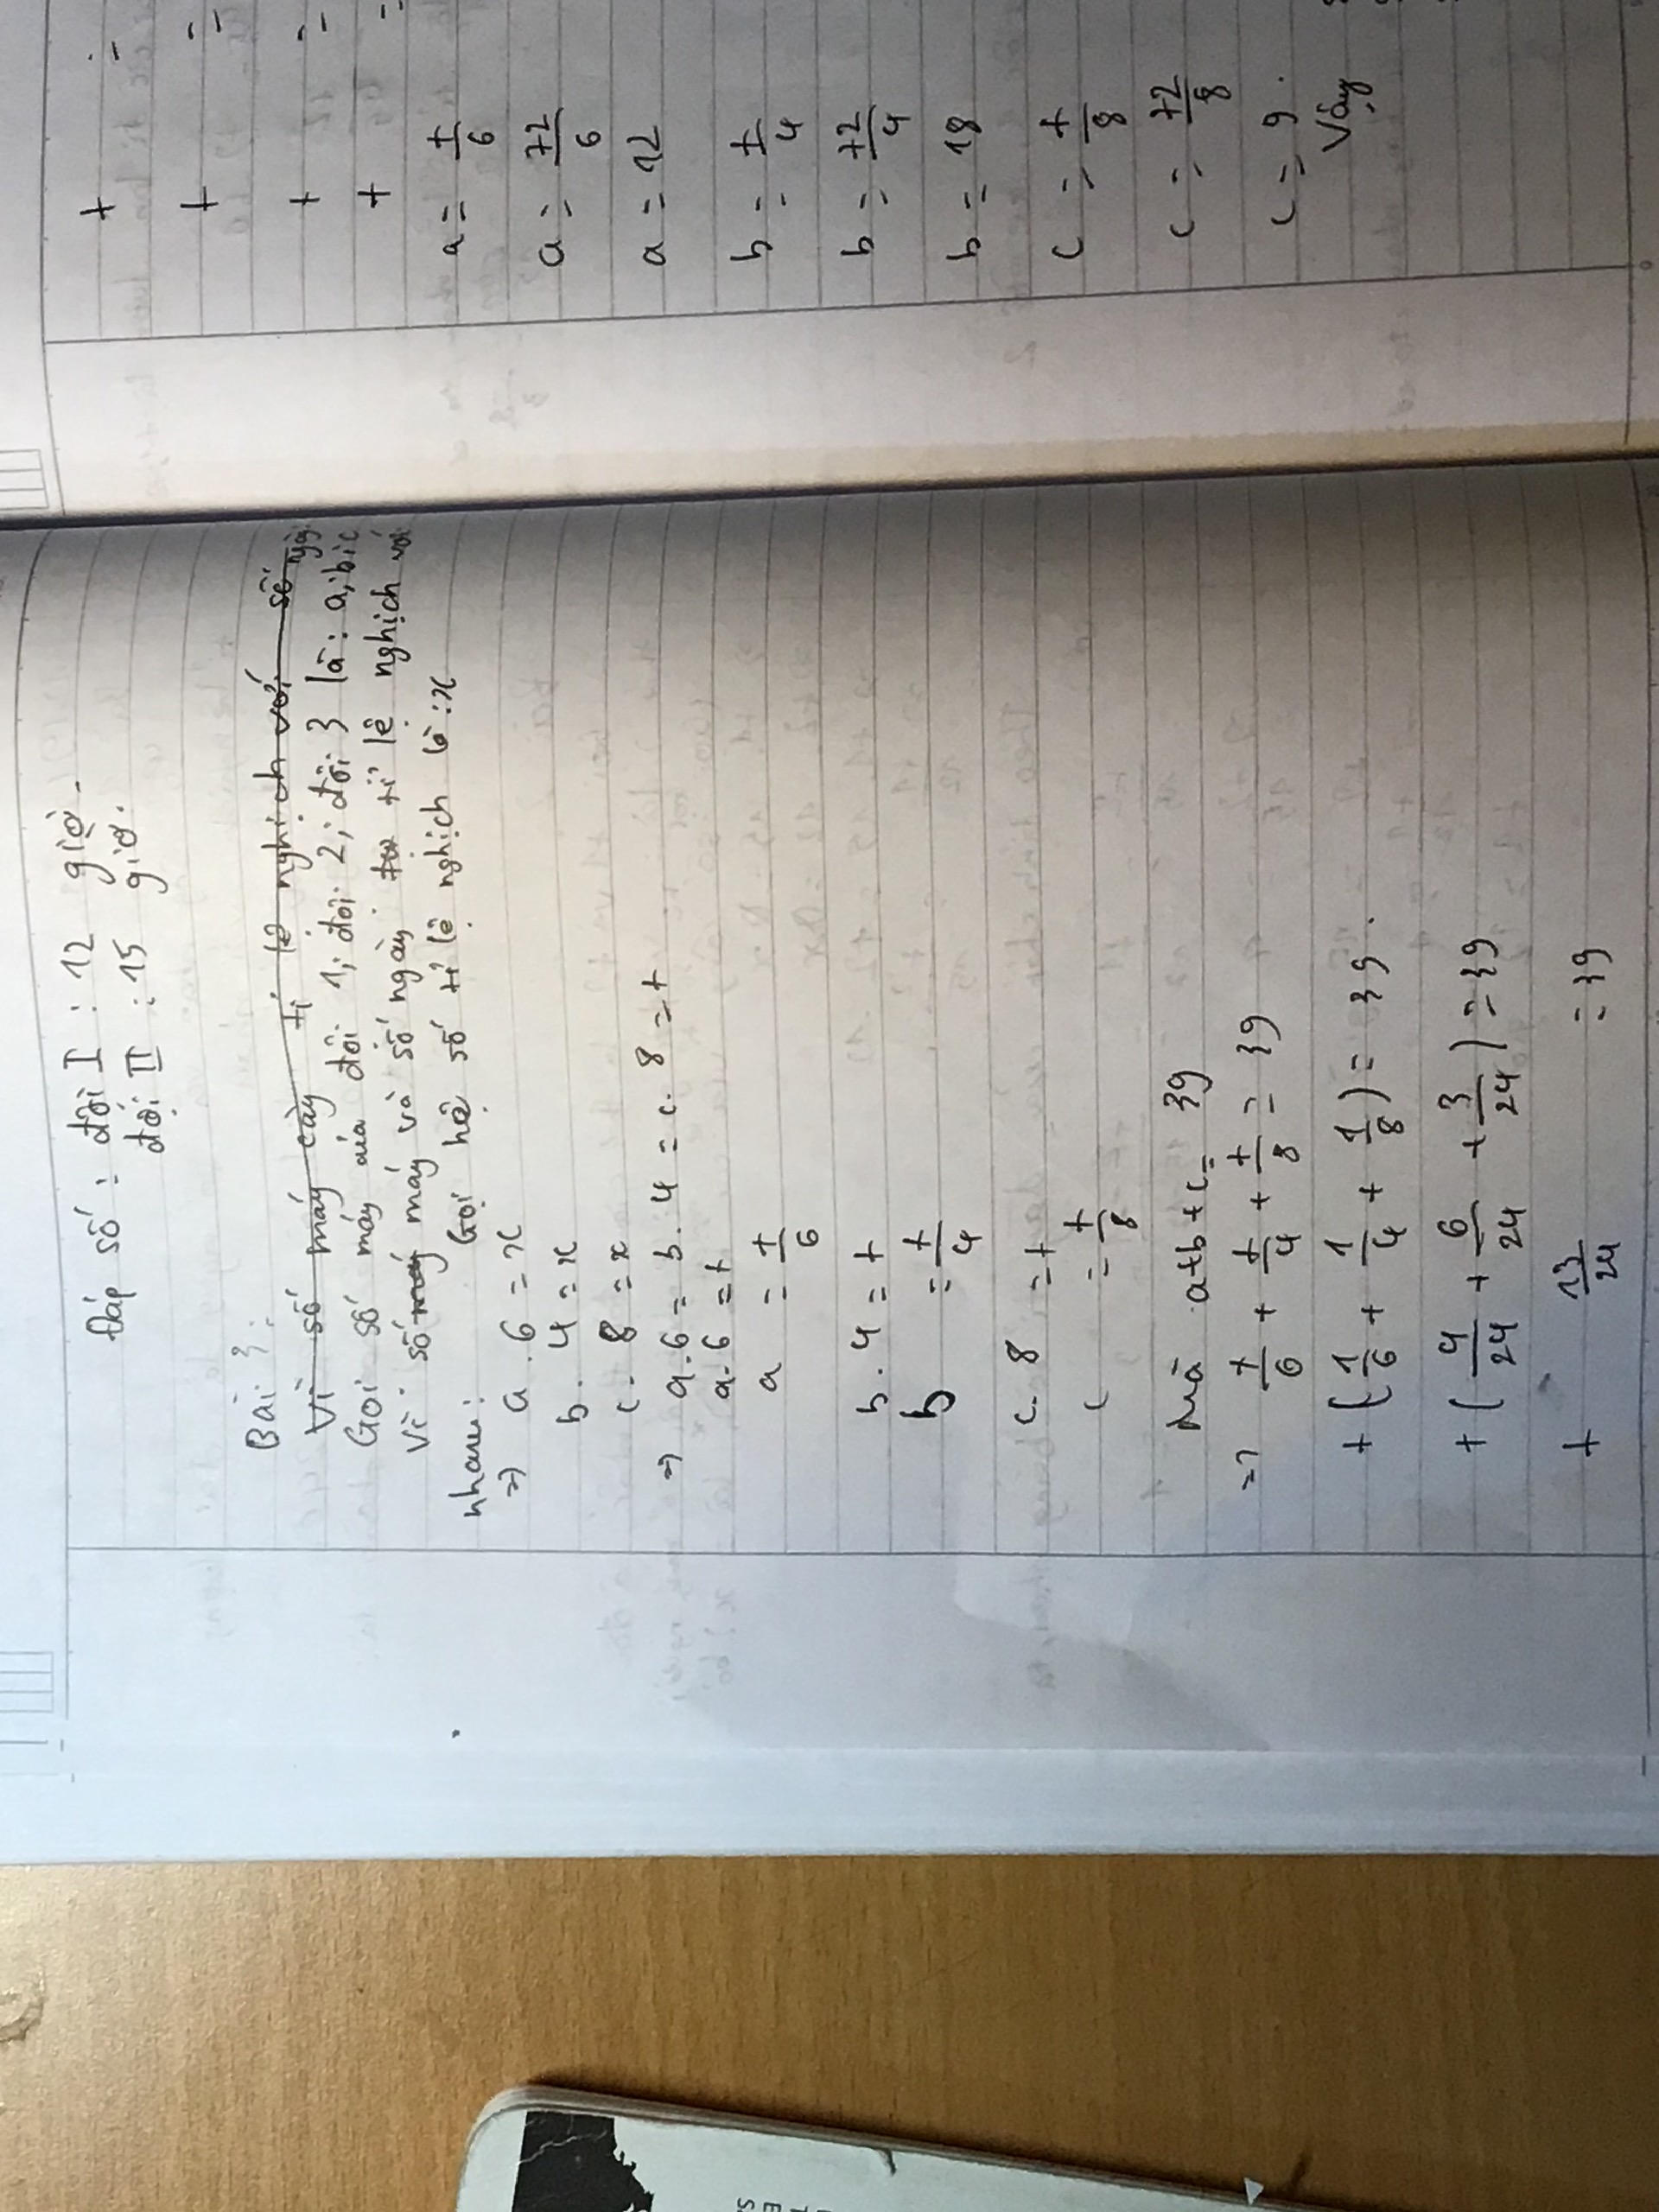 Đáp số : đội I : 12 giờ.
đội II : 15 giờ.
Bài 3:
Vì số máy cày tỉ lệ nghịch với số ngày
Gọi số máy của đội 1; đội 2; đội 3 là: a;b;c
Vì số máy máy và số ngày tỉ lệ nghịch với
nhau: Gọi hệ số tỉ lệ nghịch là: x
=> a . 6 = x
b . 4 = x
c . 8 = x
=> a.6 = b.4 = c.8 = t
a.6 = t
a = t/6
b.4 = t
b = t/4
c.8 = t
c = t/8
Mà a+b+c = 39
=> t/6 + t/4 + t/8 = 39
t(1/6 + 1/4 + 1/8) = 39.
t(4/24 + 6/24 + 3/24) = 39
t 13/24 = 39
t =
t =
t =
t =
a = t/6
a = 72/6
a = 12
b = t/4
b = 72/4
b = 18
c = t/8
c = 72/8
c = 9.
Vậy